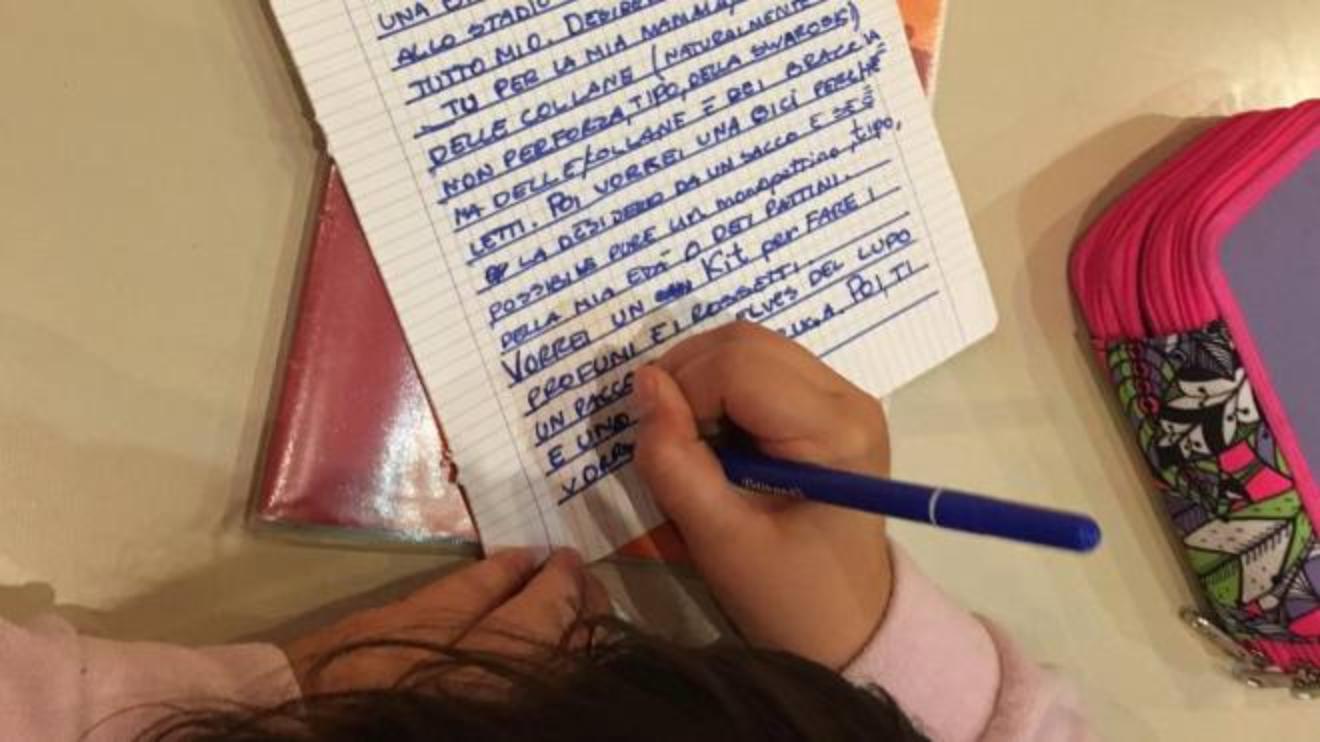 UNA
ALLO STADIO
TUTTO MIO. DESIDE
TU PER LA MIA MAMMA,
DELLE COLLANE (NATURALMENTE
NON PERFORZA, TIPO, DELLA SWAROSKI)
MA DELLE COLLANE E DEI BRACCIA
LETTI. POI VORREI UNA BICI PERCHÈ
LA DESIDERO DA UN SACCO E SE È
POSSIBILE PURE UN monopattino, tipo,
DELLA MIA ETÀ O DEI PATTINI.
VORREI UN Kit per FARE I
PROFUMI E I ROSSETTI.
UN PACCE ELVES DEL LUPO
E UNO RUGA. POI TI
VORR